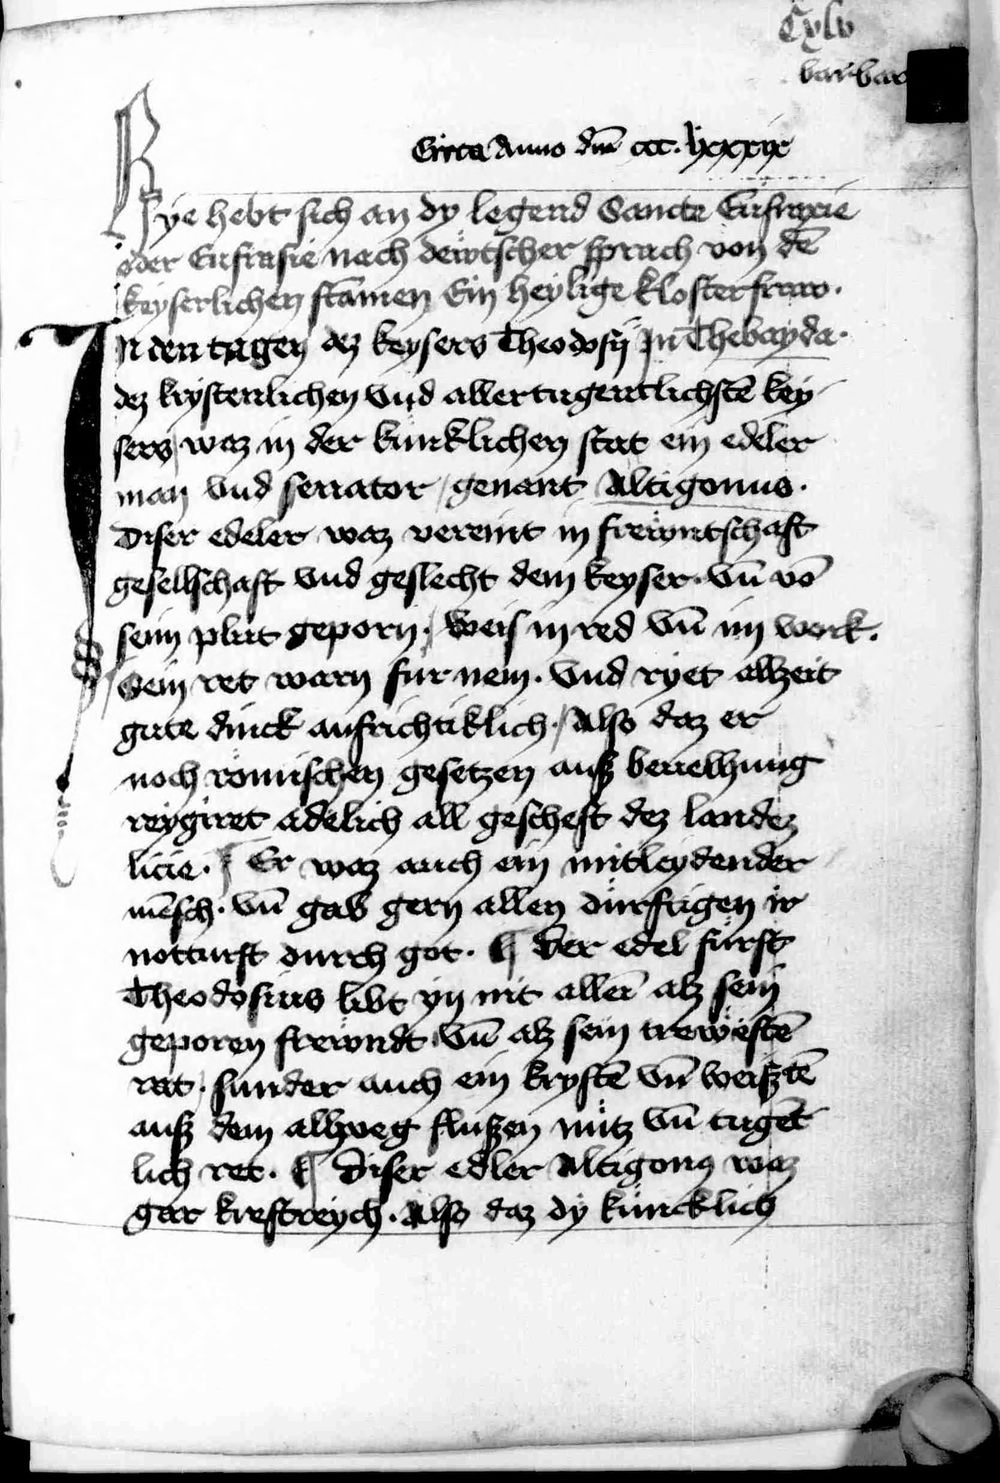 Circa Anno dm̄ ccc. lxxxix
Hye hebt sich an dy legend Sancte Eufraxie
oder Eufrasie nach dewtscher sprach von dē
keyserlichen stāmen Ein heylige klosterfraw.
In den tagen dez keysers Theodosij In Thebayda.
dez krystenlichen vnd allertugentlichstē key
sers waz in der kuncklichen stat ein edeler
man vnd senator genant Altigonus.
Diser edeler waz vereint in frewntschaft
gesellschaft vnd geslecht dem keyser. vn̄ vō
seim plut geporn. Weis in red vn̄ im werk.
Sein ret warn fur nem. vnd ryet allzeit
gute dinck aufrichtiklich. Also daz er
noch römischen gesetzen ausz beuelhung
reygiret adelich all gescheft dez landez
licie. Er waz auch ein mitleydender
mēsch. vn̄ gab gern allen dürftigen ir
notturft durch got. Der edel fürst
Theodosius libt yn nit allein alz sein
geporen frewndt vn̄ alz sein trewestē
rat. sunder auch ein krystē vn̄ weisztē
ausz dem allweg fluszen nütz vn̄ tugēt
lich ret. Diser edler Altigonus waz
gar kreftreych. Also daz dy küncklich